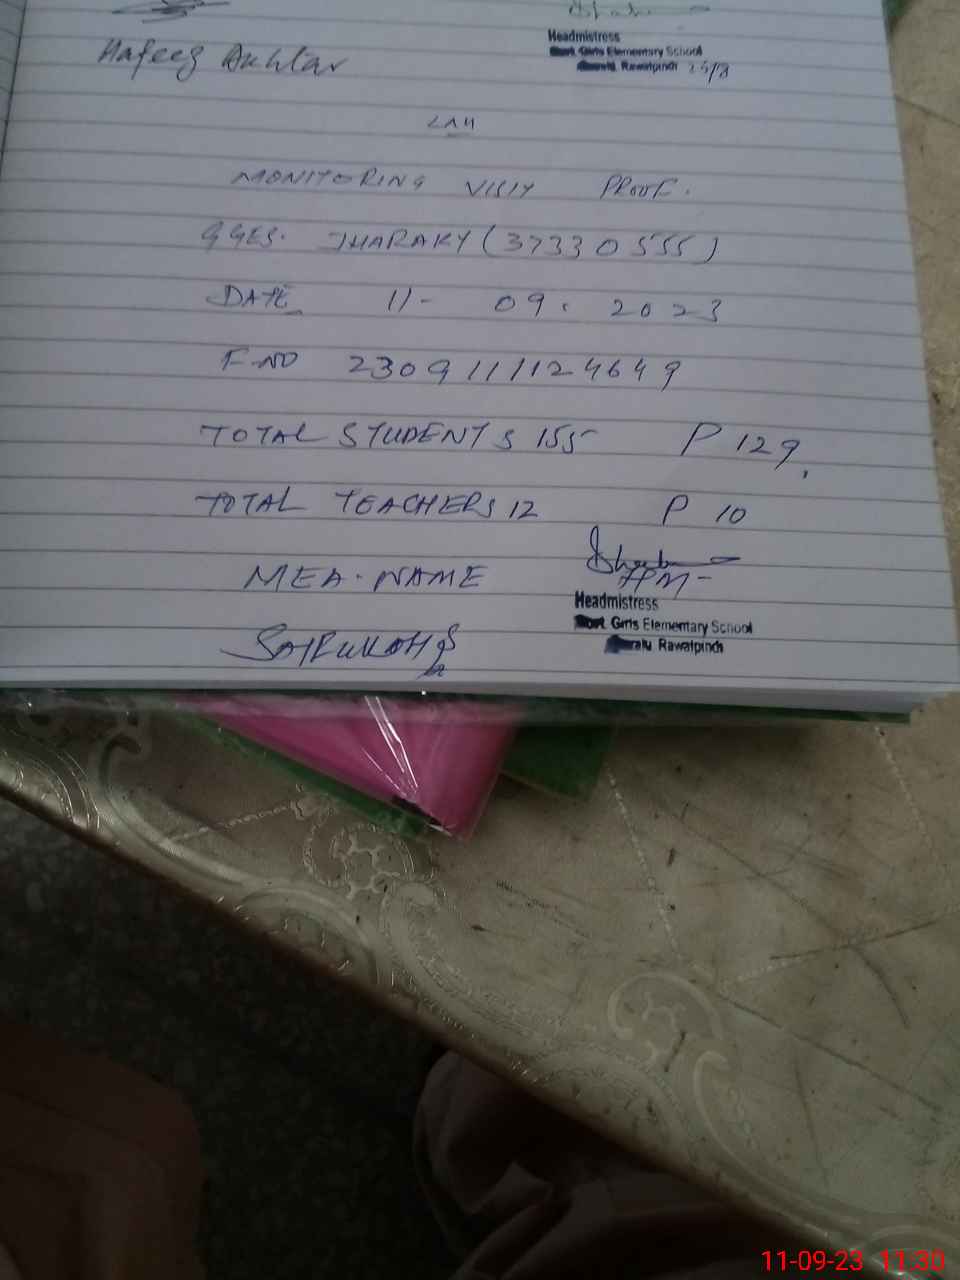 Headmistress
Govt. Girls Elementary School
Rawalpindi 25/8
Hafeez Akhtar
MONITORING VISIT PROOF.
GGES. JHARAKY (37330555)
DATE 11- 09. 2023
F-NO 2309111124649
TOTAL STUDENTS 155 P 129
TOTAL TEACHERS 12 P 10
MEA. NAME
Headmistress
Govt. Girls Elementary School
Rawalpindi
11-09-23 11:30